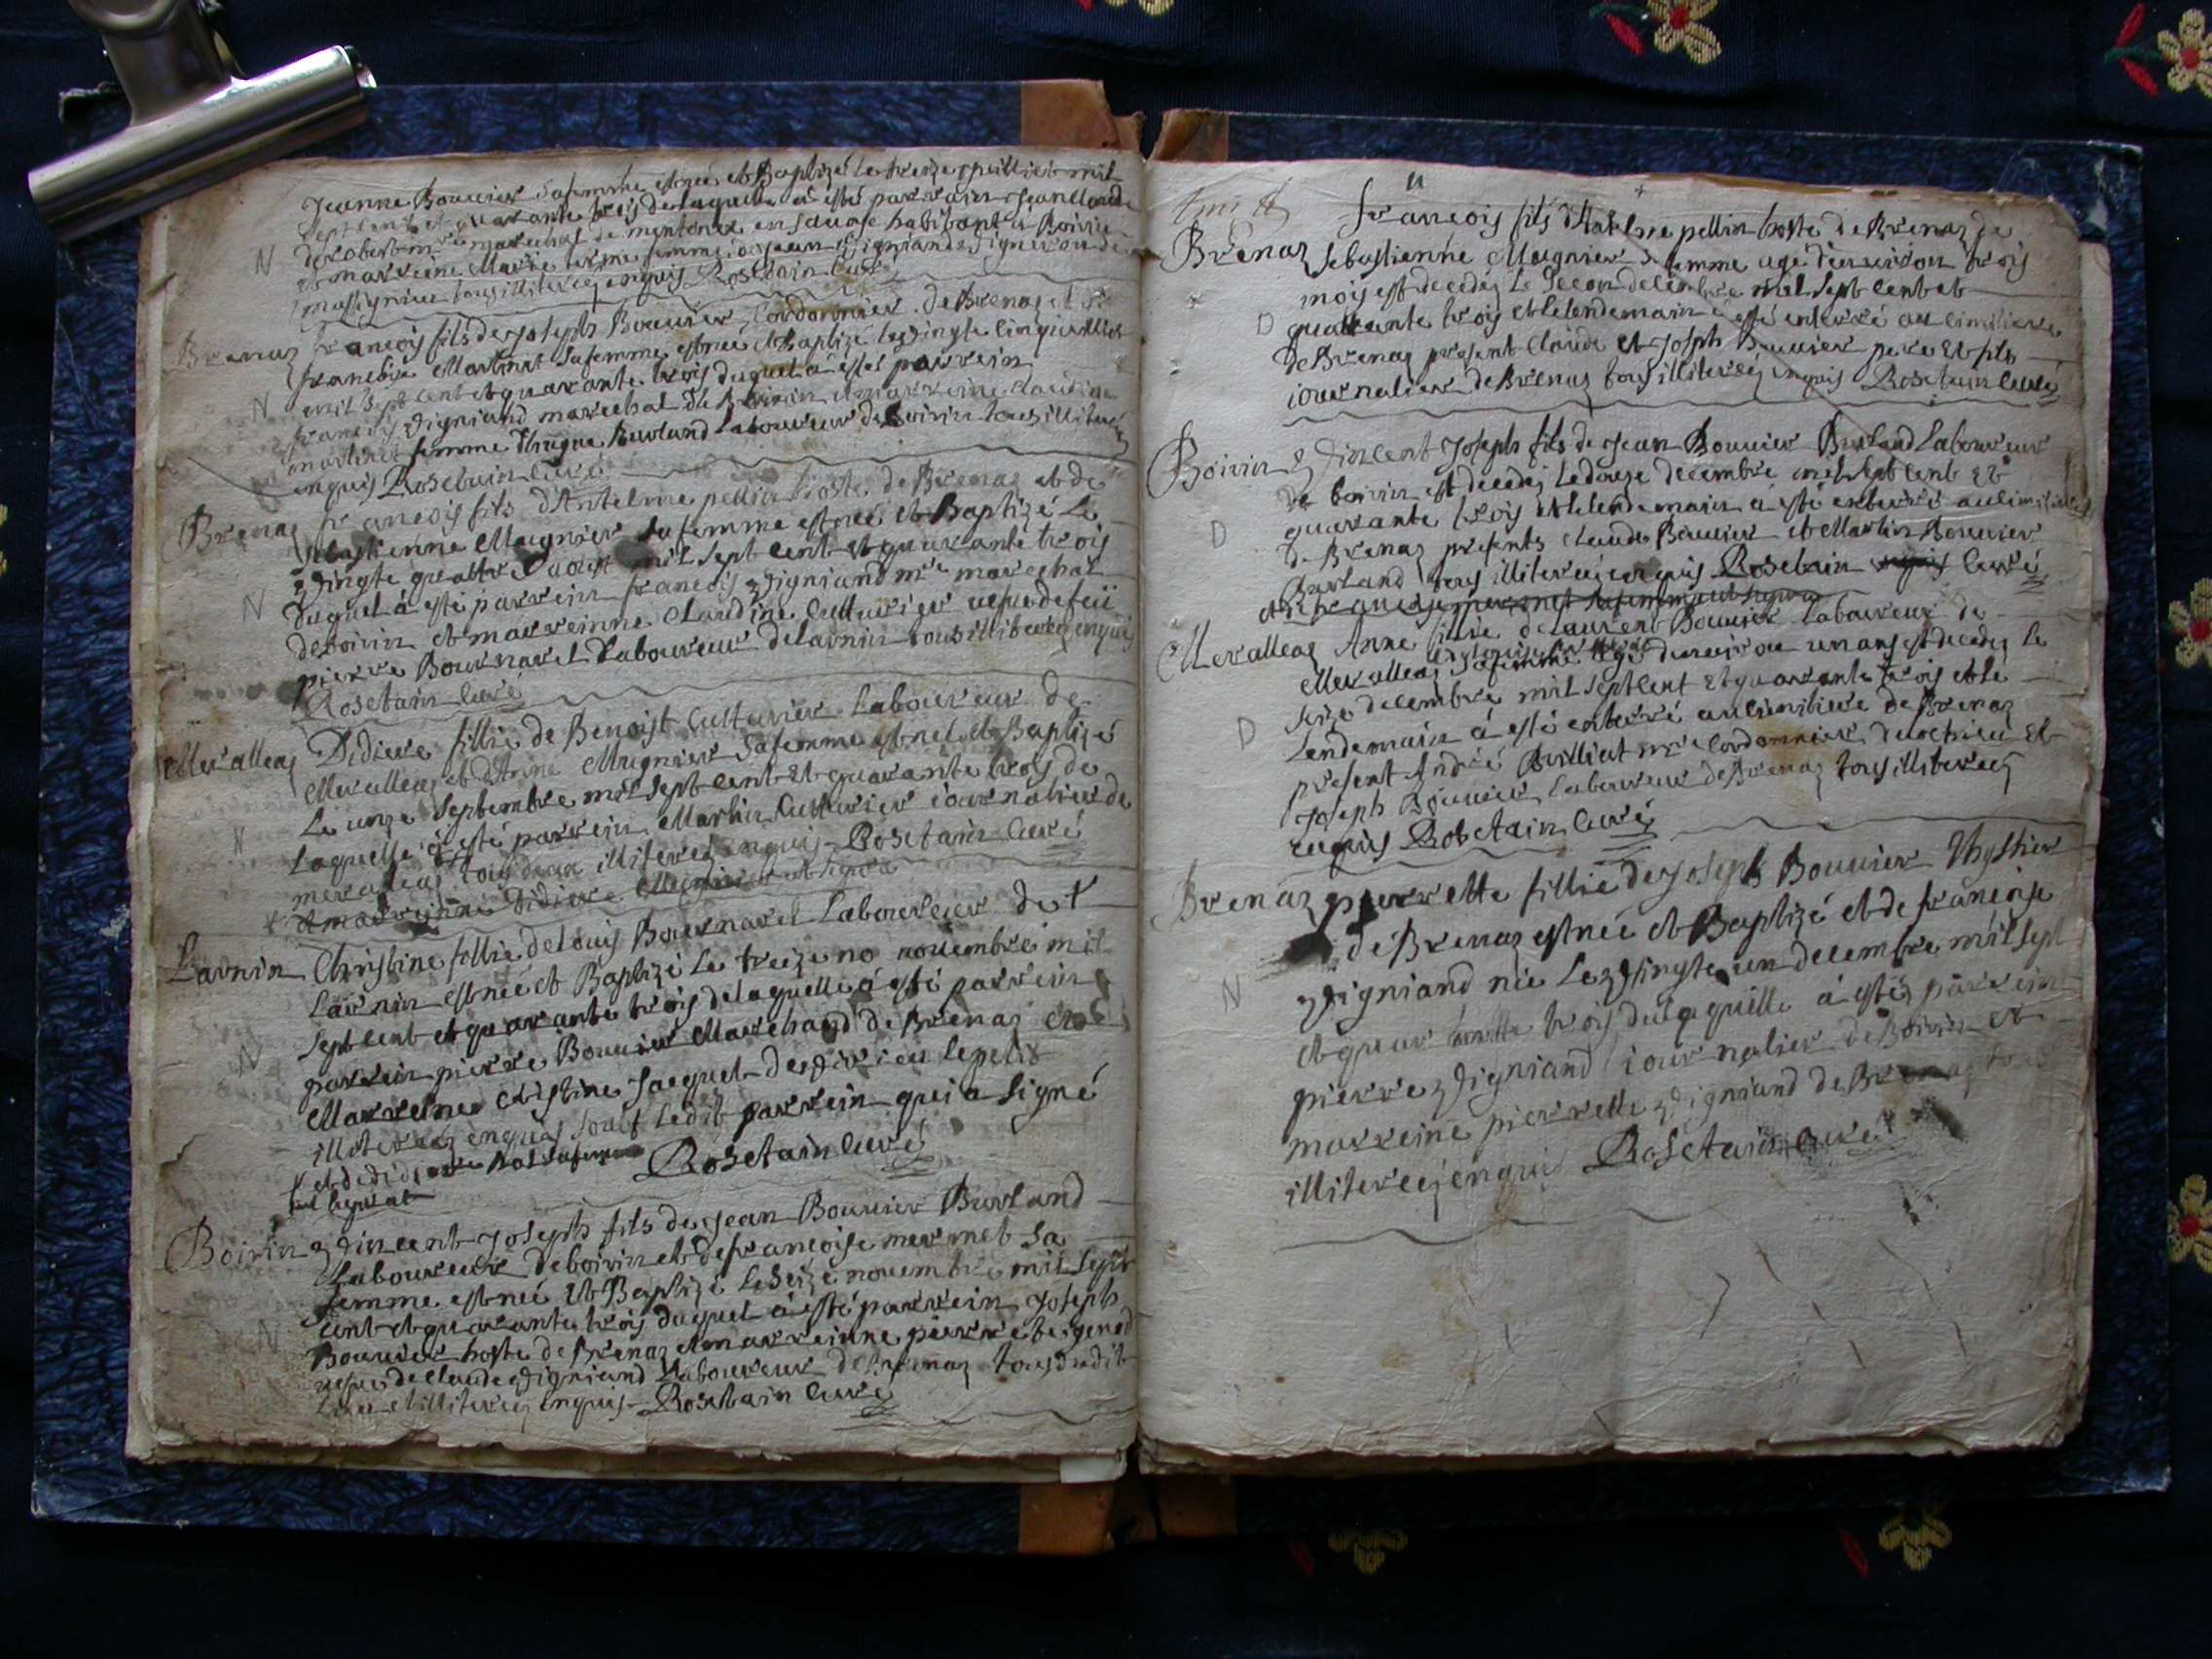 Jeanne Bouvier sa femme est née et Baptizé le treize juilliet mil
sept cent et quarante trois de laquelle à esté parrain Jean Claude
derobert mre marechal de mentonex en Savoye habitant à Boivin
N
marreine Marie femme de Jean vigniand vigneron de
tous illiterez enquis Rosetain Curé
Brenaz francois fils de Joseph Bouvier Cordonnier de Brenaz et de
francoise Martinet sa femme est née et Baptizé le vingte cinq juilliet
N mil sept cent et quarante trois duquel à esté parrein
francois vigniand marechal de Boivin et marreine claudine
martinet femme d'hugue Burland Laboureur de Boivin tous illiterez
enquis Rosetain Curé
Brenaz francois fils d'Antelme pellin hoste de Brenaz et de
sebastienne Mugnier sa femme est née et Baptizé Le
vingte quattre aoust mil sept cent et quarante trois
N duquel à esté parrein francois vigniand mre marechal
de Boivin et marreinne Claudine Cutturier vefve de feü
pierre Bournarel Laboureur de Lavnin tous illiterez enquis
Rosetain Curé
Meralleaz Didiere fillie de Benoist Cutturier Laboureur de
Meralleaz et d'Anne Mugnier sa femme est née et Baptizé
Le unze septembre mil sept cent et quarante trois de
N Laquelle à esté parrein Martin Cutturier iournalier de
meraleaz tous deux illiterez enquis Rosetain Curé
+ et marreinne Didiere Mugnier
Lavnin Christine fillie de Louis Bournarel Laboureur de +
Lavnin est née et Baptizé Le treize no novembre mil
sept cent et quarante trois de laquelle à esté parrein
N parrein pierre Bouvier Marchand de Brenaz et
Marreine christine Jacquet de virieu le petit
illiterez enquis souf ledit parrein qui a signé
+ et de Rosetain curé
Boivin vincent Joseph fils de Jean Bouvier Burland
Laboureur de boivin et de francoise mermet sa
femme est née et Baptizé le seize novembre mil sept
cent et quarante trois duquel à esté parrein Joseph
N Bouvier hoste de Brenaz et marreinne pierrette genod
vefve de claude vigniand Laboureur de Brenaz tous dudit
Lieu et illiterez enquis Rosetain Curé
francois fils d'Antelme pellin hoste de Brenaz de
Brenaz sebastienne Mugnier sa femme agé d'environ trois
mois est decedez Le Secon decembre mil sept cent et
D quattante trois et le lendemain à esté enterré au cimitiere
de Brenaz present claude et Joseph Bouvier pere et fils
iournalier de Brenaz tous illiterez enquis Rosetain Curé
Boivin vincent Joseph fils de Jean Bouvier Burland Laboureur
de boivin est decedez Le douze decembre mil sept cent et
quarante trois et le lendemain à esté enterré au cimitiere
D de Brenaz presents claude Bouvier et Martin Bouvier
Burland tous illiterez enquis Rosetain Curé
et de francoise mermet sa femme
Meralleaz Anne fillie de Laurent Bouvier Laboureur de
Meralleaz sa femme agé d'environ un ans est decedez Le
seize decembre mil sept cent et quarante trois et le
D Lendemain à esté enterré au cimitiere de Brenaz
present André Brilliat mre Cordonnier et
Joseph Bouvier Laboureur de Brenaz tous illiterez
enquis Rosetain Curé
Brenaz pierrette fillie de Joseph Bouvier
de Brenaz est née et Baptizé et de francoise
N vigniand née Le vingte un decembre mil sept
et quarante trois de laquelle à estéz parrein
pierre vigniand iournalier de Boivin et
marreine pierrette vigniand de Brenaz tous
illiterez enquis Rosetain curé